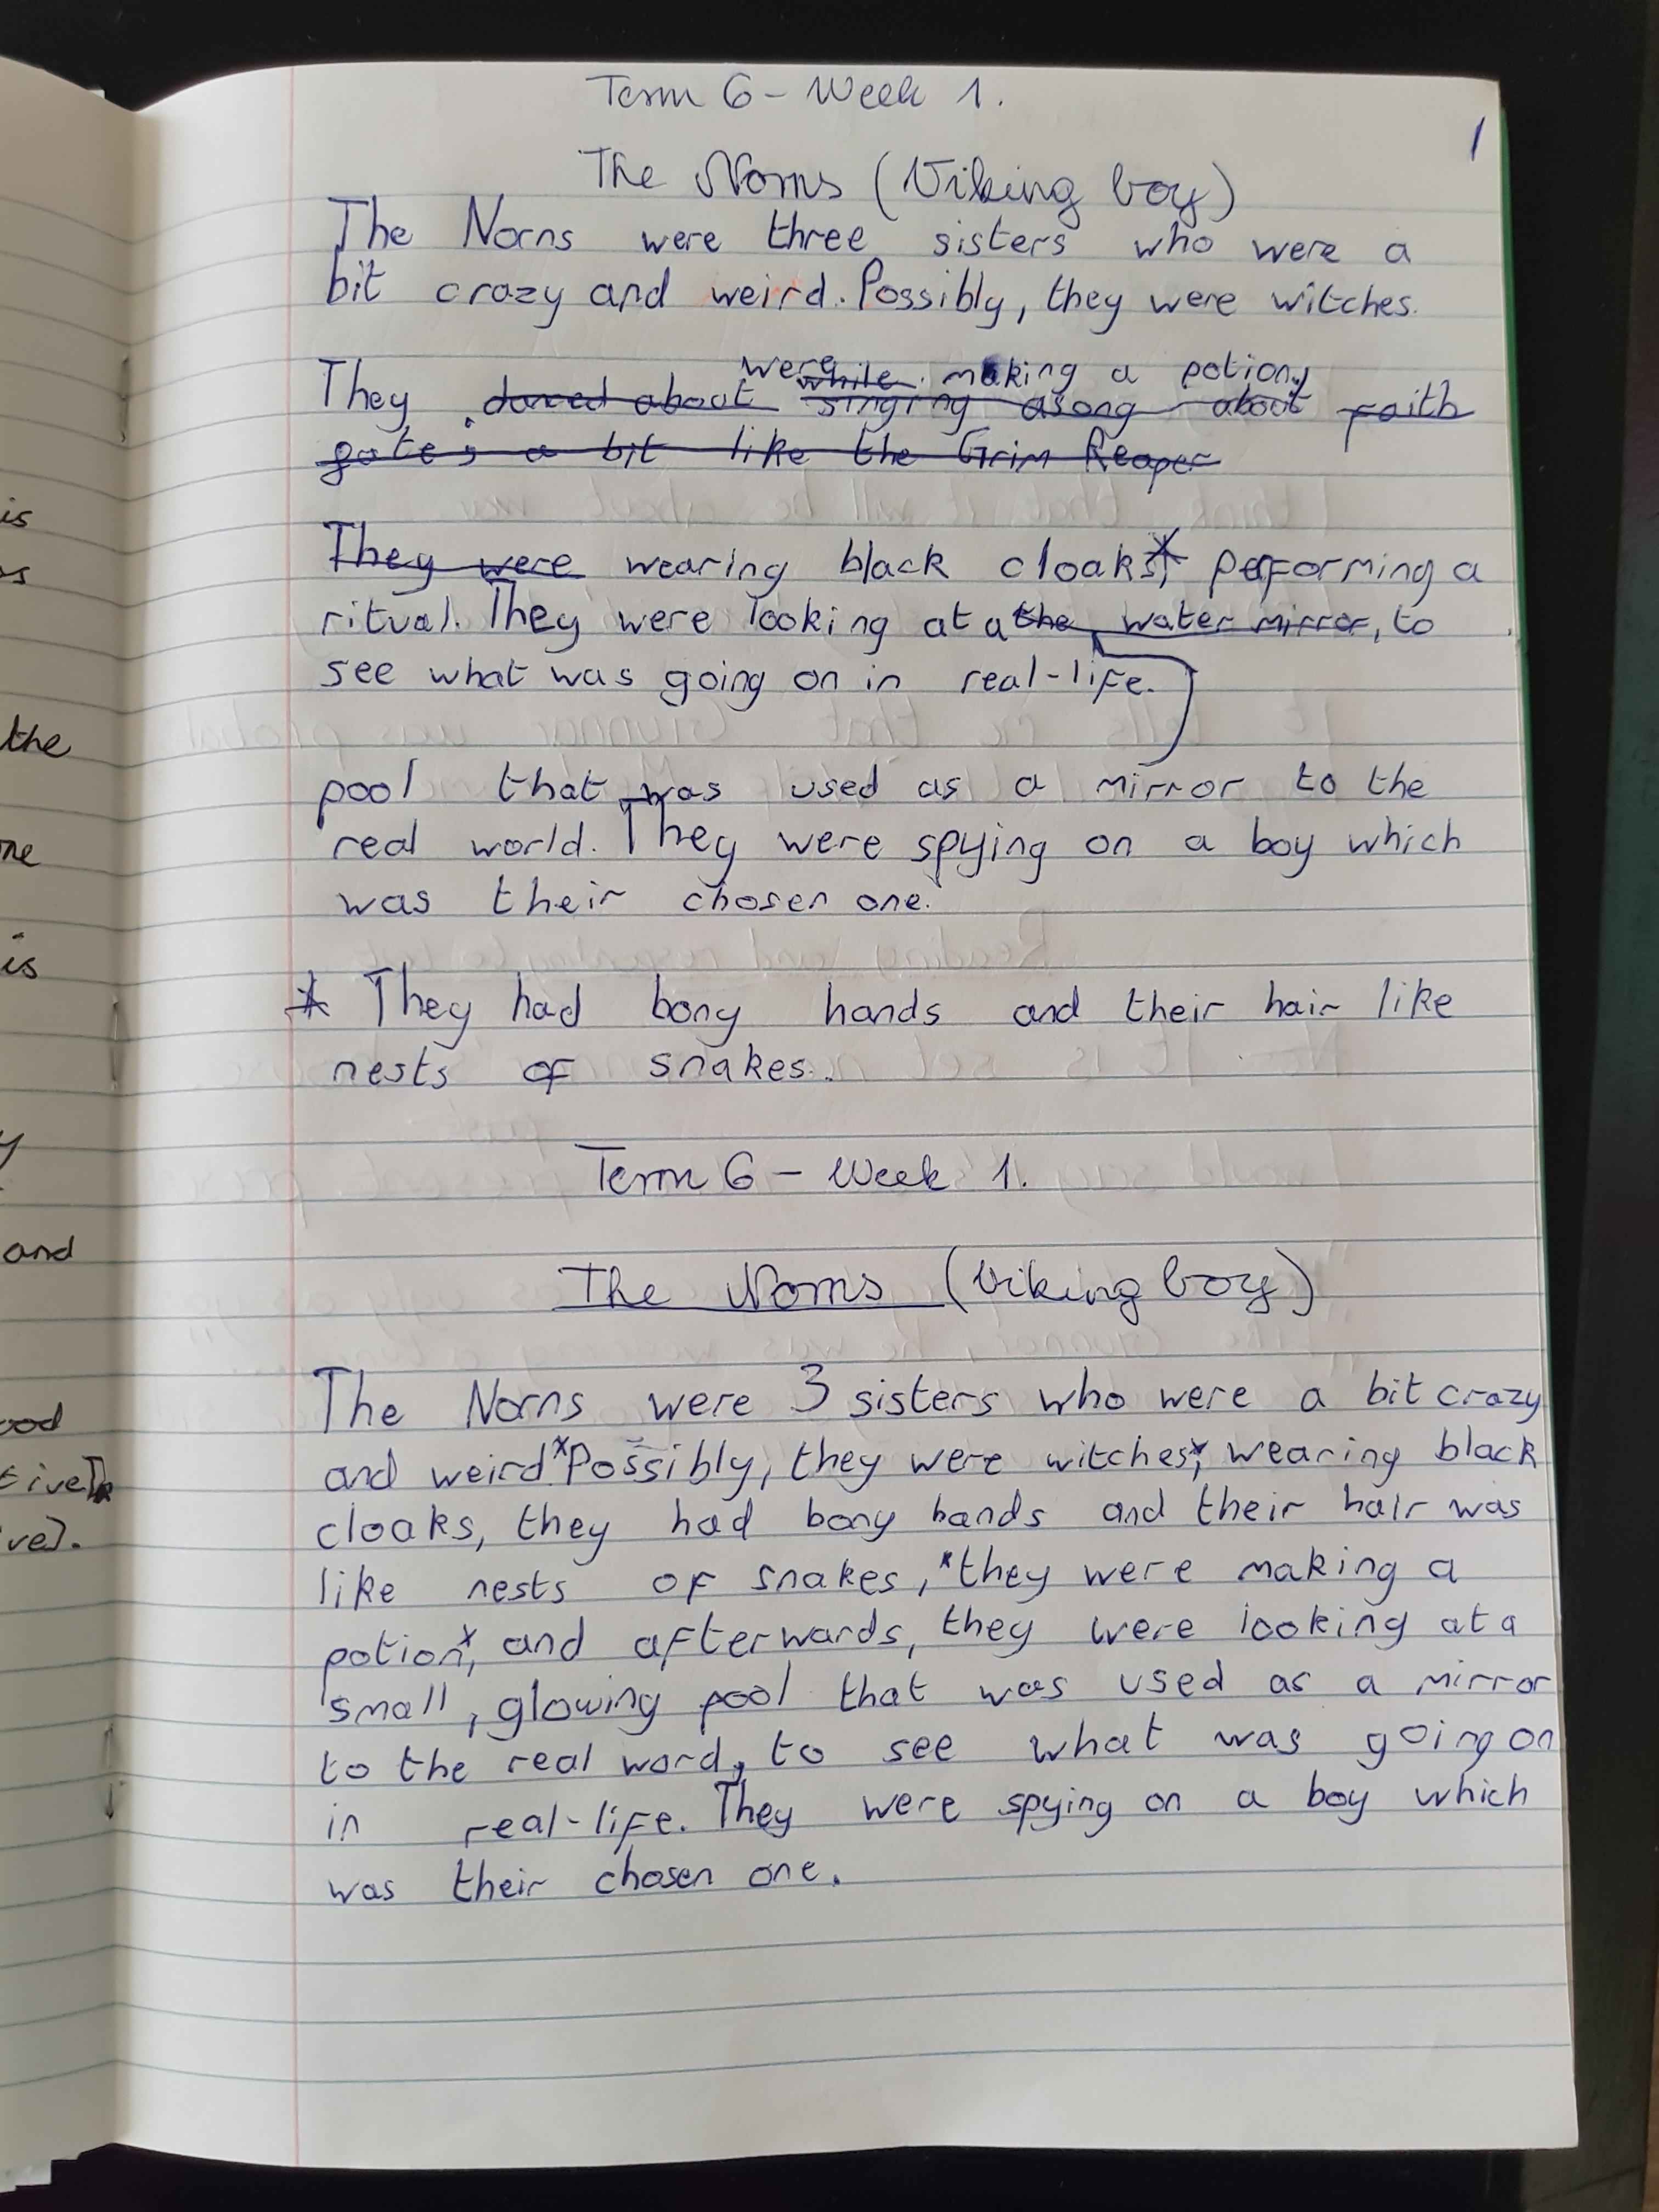 Term 6 - Week 1.
1
The Norns (Viking boy)
The Norns were three sisters who were a
bit crazy and weird. Possibly, they were witches.
were while making a potion,
They danced about singing asong about faith
gate, a bit like the Grim Reaper
They were wearing black cloaks,* performing a
ritual. They were looking at a the water mirror, to
see what was going on in real-life.
pool that was used as a mirror to the
real world. They were spying on a boy which
was their chosen one.
* They had bony hands and their hair like
nests of snakes.
Term 6 - Week 1.
The Norns (Viking boy)
The Norns were 3 sisters who were a bit crazy
and weird* Possibly, they were witches*, wearing black
cloaks, they had bony hands and their hair was
like nests of snakes, *they were making a
potion*, and afterwards, they were looking at a
small, glowing pool that was used as a mirror
to the real word, to see what was going on
in real-life. They were spying on a boy which
was their chosen one.
is
os
the
ne
is
y
and
ood
tive
ve).